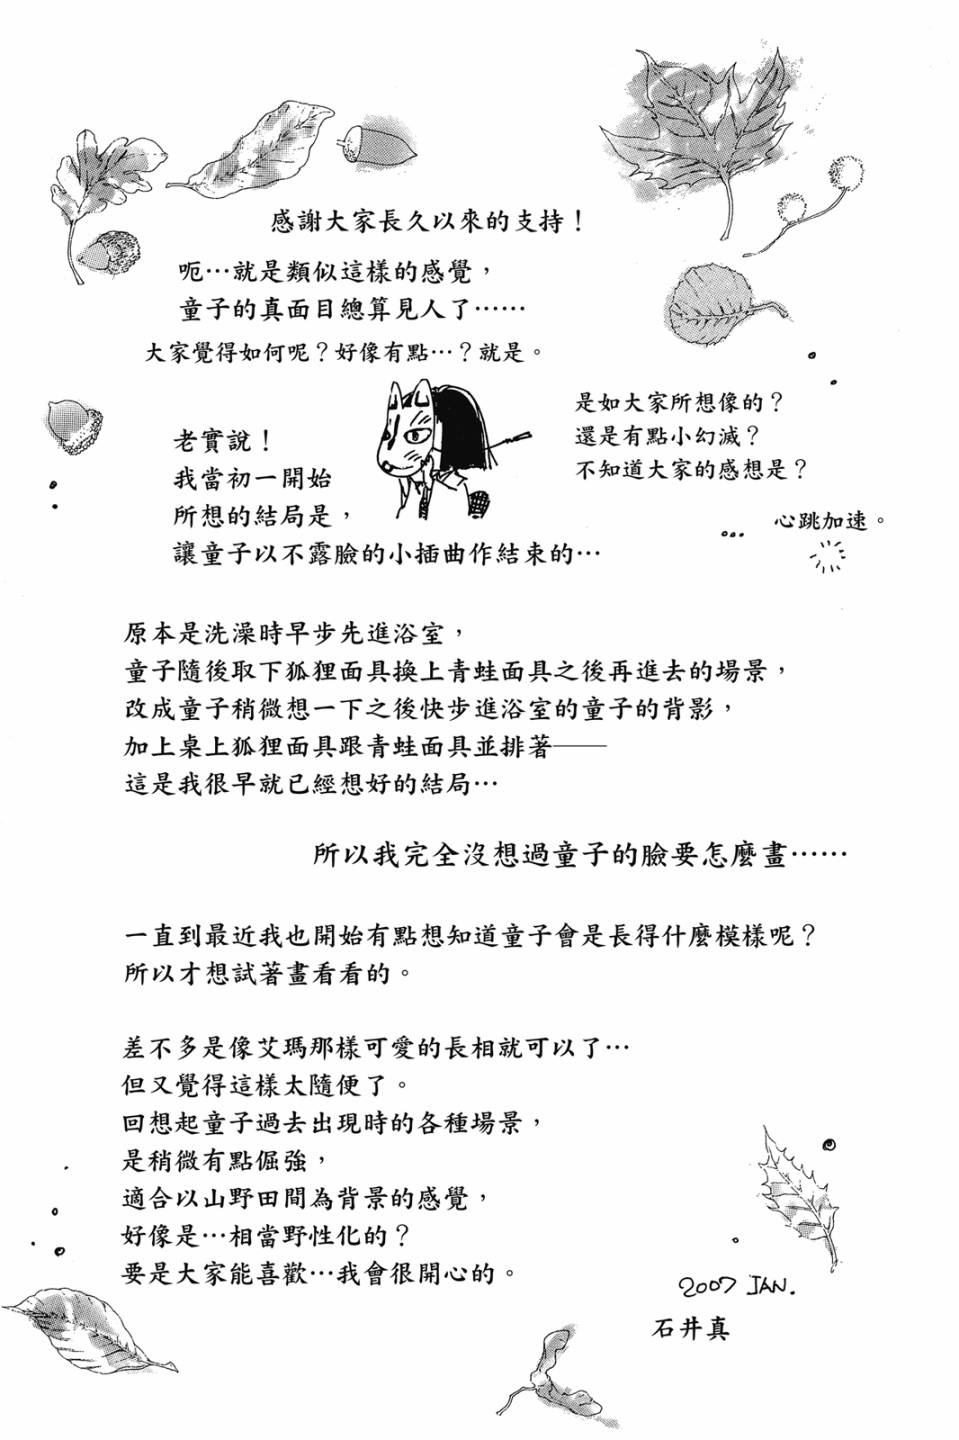 感謝大家長久以來的支持！
呃…就是類似這樣的感覺，
童子的真面目總算見人了……
大家覺得如何呢？好像有點…？就是。
是如大家所想像的？
還是有點小幻滅？
不知道大家的感想是？
心跳加速。
老實說！
我當初一開始
所想的結局是，
讓童子以不露臉的小插曲作結束的…
原本是洗澡時早步先進浴室，
童子隨後取下狐狸面具換上青蛙面具之後再進去的場景，
改成童子稍微想一下之後快步進浴室的童子的背影，
加上桌上狐狸面具跟青蛙面具並排著——
這是我很早就已經想好的結局…
所以我完全沒想過童子的臉要怎麼畫……
一直到最近我也開始有點想知道童子會是長得什麼模樣呢？
所以才想試著畫看看的。
差不多是像艾瑪那樣可愛的長相就可以了…
但又覺得這樣太隨便了。
回想起童子過去出現時的各種場景，
是稍微有點倔強，
適合以山野田間為背景的感覺，
好像是…相當野性化的？
要是大家能喜歡…我會很開心的。
2007 JAN.
石井真